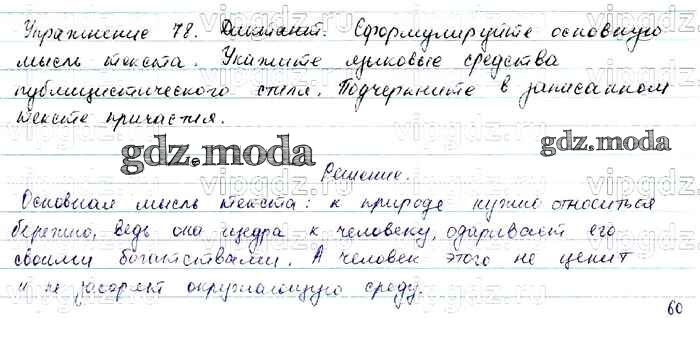 Упражнение 78. Диктант. Сформулируйте основную
мысль текста. Укажите языковые средства
публицистического стиля. Подчеркните в записанном
тексте причастия.
gdz.moda
gdz.moda
Решение.
Основная мысль текста: к природе нужно относиться
бережно, ведь она щедра к человеку, одаривает его
своими богатствами. А человек этого не ценит
и засоряет окружающую среду.
60